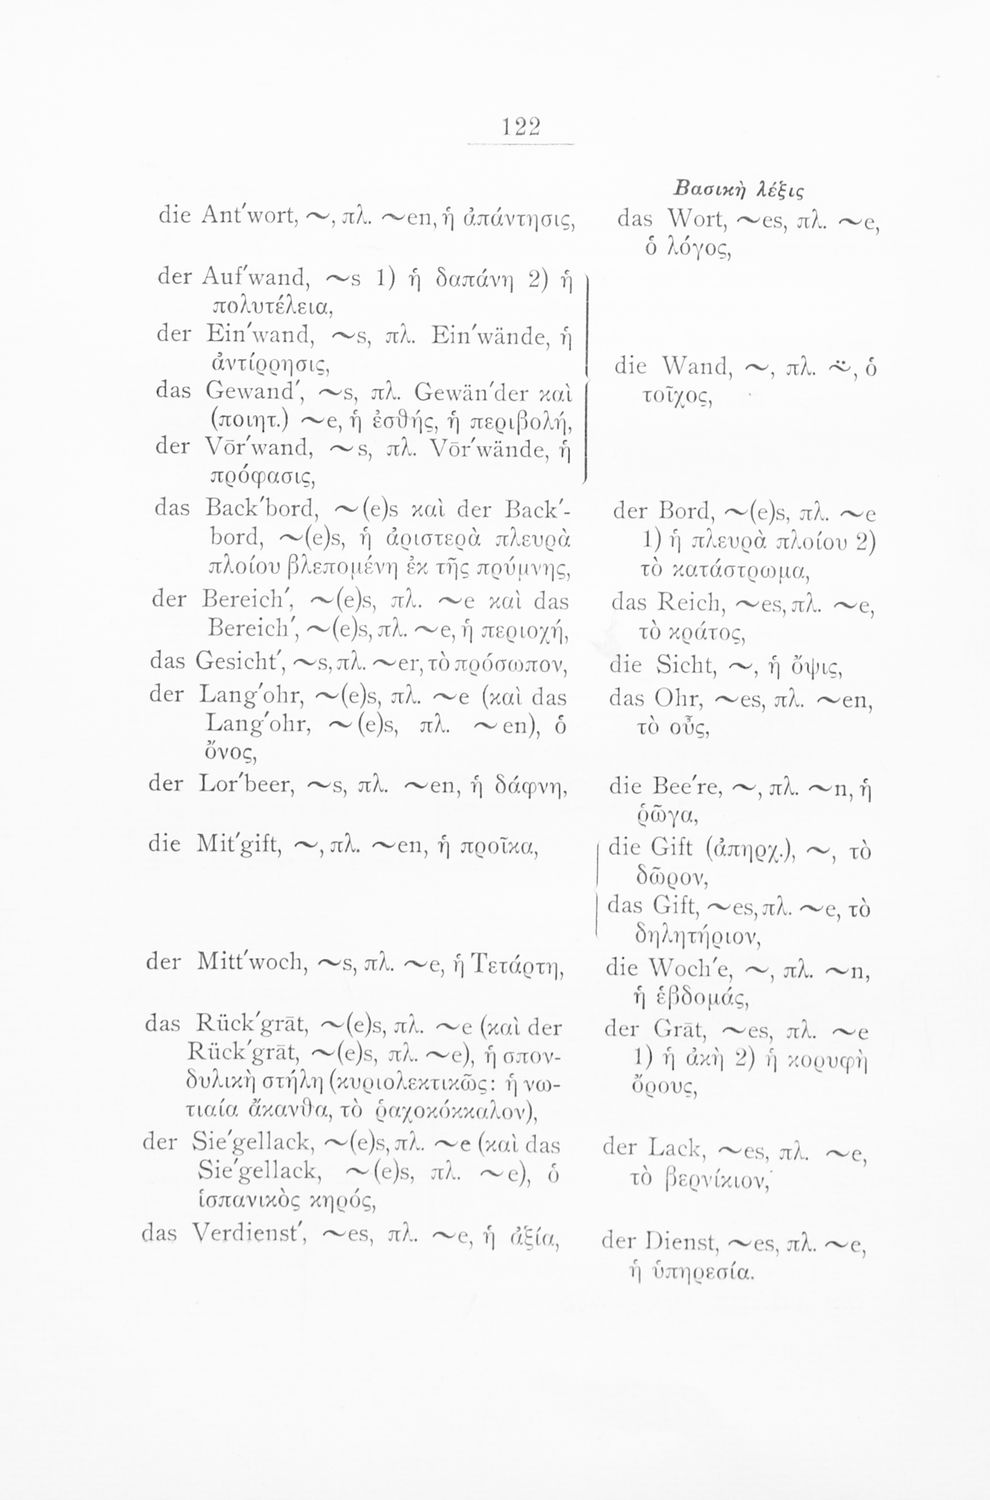 122
Βασικὴ λέξις
die Ant'wort, ~, πλ. ~en, ἡ ἀπάντησις,
das Wort, ~es, πλ. ~e,
ὁ λόγος,
der Auf'wand, ~s 1) ἡ δαπάνη 2) ἡ
πολυτέλεια,
der Ein'wand, ~s, πλ. Ein'wände, ἡ
ἀντίρρησις,
das Gewand', ~s, πλ. Gewän'der καὶ
(ποιητ.) ~e, ἡ ἐσθής, ἡ περιβολή,
der Vōr'wand, ~s, πλ. Vōr'wände, ἡ
πρόφασις,
die Wand, ~, πλ. ~̈, ὁ
τοῖχος,
das Back'bord, ~(e)s καὶ der Back'-
bord, ~(e)s, ἡ ἀριστερὰ πλευρὰ
πλοίου βλεπομένη ἐκ τῆς πρύμνης,
der Bord, ~(e)s, πλ. ~e
1) ἡ πλευρὰ πλοίου 2)
τὸ κατάστρωμα,
der Bereich', ~(e)s, πλ. ~e καὶ das
Bereich', ~(e)s, πλ. ~e, ἡ περιοχή,
das Reich, ~es, πλ. ~e,
τὸ κράτος,
das Gesicht', ~s, πλ. ~er, τὸ πρόσωπον,
die Sicht, ~, ἡ ὄψις,
der Lang'ohr, ~(e)s, πλ. ~e (καὶ das
Lang'ohr, ~(e)s, πλ. ~en), ὁ
ὄνος,
das Ohr, ~es, πλ. ~en,
τὸ οὖς,
der Lor'beer, ~s, πλ. ~en, ἡ δάφνη,
die Bee're, ~, πλ. ~n, ἡ
ῥῶγα,
die Mit'gift, ~, πλ. ~en, ἡ προῖκα,
die Gift (ἀπηρχ.), ~, τὸ
δῶρον,
das Gift, ~es, πλ. ~e, τὸ
δηλητήριον,
der Mitt'woch, ~s, πλ. ~e, ἡ Τετάρτη,
die Woch'e, ~, πλ. ~n,
ἡ ἑβδομάς,
das Rück'grāt, ~(e)s, πλ. ~e (καὶ der
Rück'grāt, ~(e)s, πλ. ~e), ἡ σπον-
δυλικὴ στήλη (κυριολεκτικῶς: ἡ νω-
τιαία ἄκανθα, τὸ ῥαχοκόκκαλον),
der Grāt, ~es, πλ. ~e
1) ἡ ἀκὴ 2) ἡ κορυφὴ
ὄρους,
der Sie'gellack, ~(e)s, πλ. ~e (καὶ das
Sie'gellack, ~(e)s, πλ. ~e), ὁ
ἱσπανικὸς κηρός,
der Lack, ~es, πλ. ~e,
τὸ βερνίκιον,
das Verdienst', ~es, πλ. ~e, ἡ ἀξία,
der Dienst, ~es, πλ. ~e,
ἡ ὑπηρεσία.